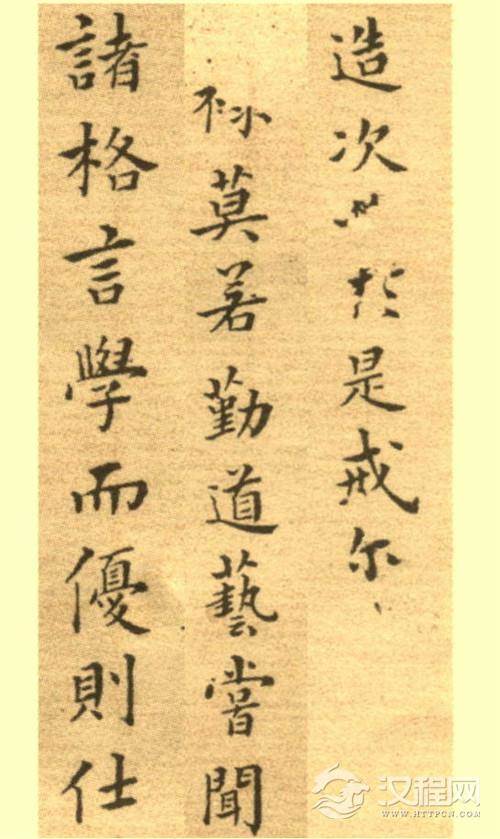 造次必於是戒尔
莫若勤道藝嘗聞
諸格言學而優則仕
汉程网
WWW.HTTPCN.COM